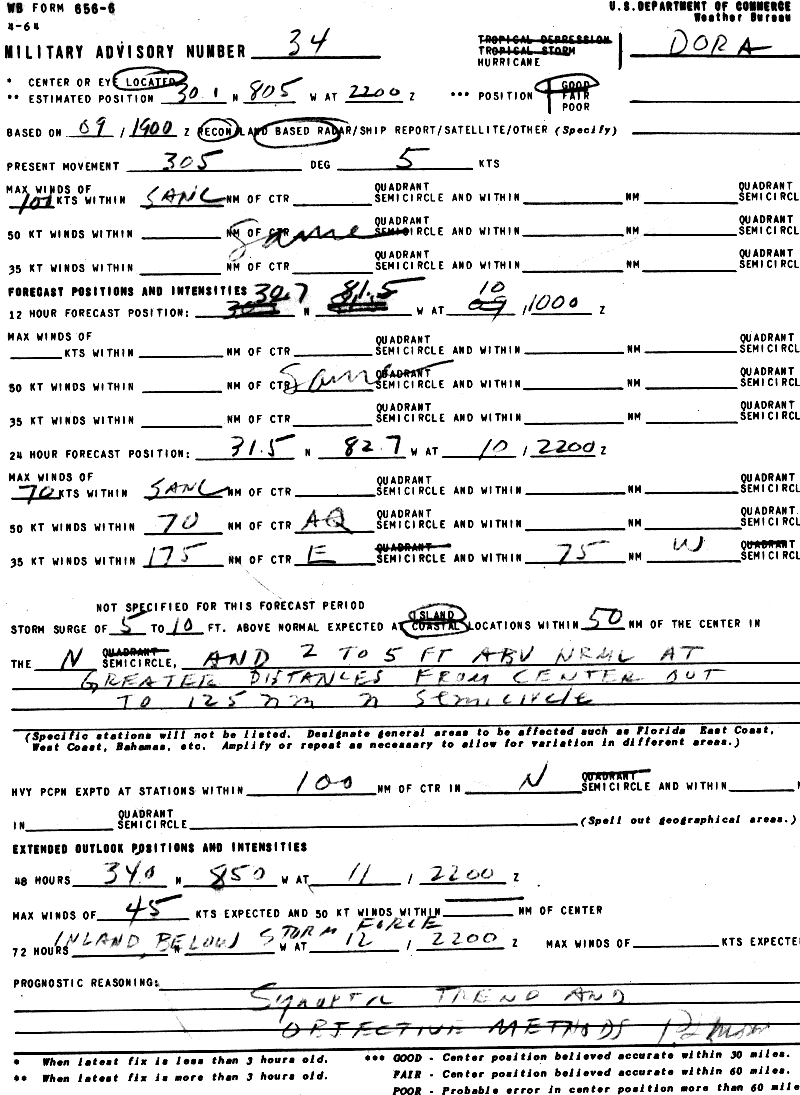 WB FORM 656-6 U.S. DEPARTMENT OF COMMERCE
4-64 Weather Bureau
MILITARY ADVISORY NUMBER 34 TROPICAL DEPRESSION DORA
TROPICAL STORM
HURRICANE
* CENTER OR EYE LOCATED GOOD
** ESTIMATED POSITION 30.1 N 805 W AT 2200 Z *** POSITION FAIR
POOR
BASED ON 09 / 1900 Z RECON/LAND BASED RADAR/SHIP REPORT/SATELLITE/OTHER (Specify)
PRESENT MOVEMENT 305 DEG 5 KTS
MAX WINDS OF QUADRANT QUADRANT
100 KTS WITHIN SANC NM OF CTR SEMICIRCLE AND WITHIN NM SEMICIRCL
QUADRANT QUADRANT
50 KT WINDS WITHIN NM OF CTR Same SEMICIRCLE AND WITHIN NM SEMICIRCL
QUADRANT QUADRANT
35 KT WINDS WITHIN NM OF CTR SEMICIRCLE AND WITHIN NM SEMICIRCL
FORECAST POSITIONS AND INTENSITIES 30.7 81.5 10
12 HOUR FORECAST POSITION: N W AT 09 , 1000 Z
MAX WINDS OF QUADRANT QUADRANT
KTS WITHIN NM OF CTR SEMICIRCLE AND WITHIN NM SEMICIRCL
QUADRANT QUADRANT
50 KT WINDS WITHIN NM OF CTR Same SEMICIRCLE AND WITHIN NM SEMICIRCL
QUADRANT QUADRANT
35 KT WINDS WITHIN NM OF CTR SEMICIRCLE AND WITHIN NM SEMICIRCL
24 HOUR FORECAST POSITION: 31.5 N 82.7 W AT 10 , 2200 Z
MAX WINDS OF QUADRANT QUADRANT
70 KTS WITHIN SANC NM OF CTR SEMICIRCLE AND WITHIN NM SEMICIRCL
QUADRANT QUADRANT
50 KT WINDS WITHIN 70 NM OF CTR AQ SEMICIRCLE AND WITHIN NM SEMICIRCL
QUADRANT QUADRANT
35 KT WINDS WITHIN 175 NM OF CTR E SEMICIRCLE AND WITHIN 75 NM W SEMICIRCL
NOT SPECIFIED FOR THIS FORECAST PERIOD ISLAND
STORM SURGE OF 5 TO 10 FT. ABOVE NORMAL EXPECTED AT COASTAL LOCATIONS WITHIN 50 NM OF THE CENTER IN
QUADRANT
THE N SEMICIRCLE, AND 2 TO 5 FT ABV NRML AT
GREATER DISTANCES FROM CENTER OUT
TO 125 nm n semicircle
(Specific stations will not be listed. Designate general areas to be affected such as Florida East Coast,
West Coast, Bahamas, etc. Amplify or repeat as necessary to allow for variation in different areas.)
QUADRANT
HVY PCPN EXPTD AT STATIONS WITHIN 100 NM OF CTR IN N SEMICIRCLE AND WITHIN
QUADRANT
IN SEMICIRCLE (Spell out geographical areas.)
EXTENDED OUTLOOK POSITIONS AND INTENSITIES
48 HOURS 340 N 850 W AT 11 / 2200 Z
MAX WINDS OF 45 KTS EXPECTED AND 50 KT WINDS WITHIN NM OF CENTER
INLAND BELOW STORM FORCE
72 HOURS N W AT 12 / 2200 Z MAX WINDS OF KTS EXPECTE
PROGNOSTIC REASONING:
SYNOPTIC TREND AND
OBJECTIVE METHODS
* When latest fix is less than 3 hours old. *** GOOD - Center position believed accurate within 30 miles.
** When latest fix is more than 3 hours old. FAIR - Center position believed accurate within 60 miles.
POOR - Probable error in center position more than 60 mile